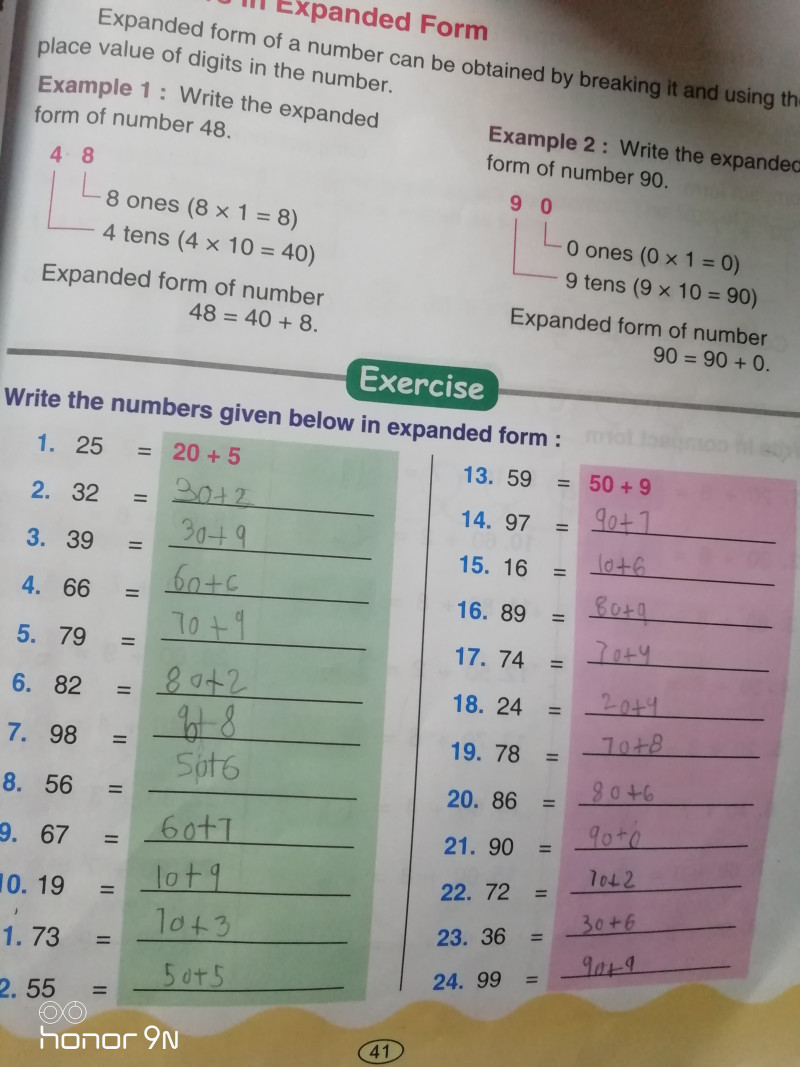 in Expanded Form
Expanded form of a number can be obtained by breaking it and using the
place value of digits in the number.
Example 1 : Write the expanded
form of number 48.
4 8
8 ones (8 × 1 = 8)
4 tens (4 × 10 = 40)
Expanded form of number
48 = 40 + 8.
Example 2 : Write the expanded
form of number 90.
9 0
0 ones (0 × 1 = 0)
9 tens (9 × 10 = 90)
Expanded form of number
90 = 90 + 0.
Exercise
Write the numbers given below in expanded form :
1. 25 = 20 + 5
2. 32 = 30+2
3. 39 = 30+9
4. 66 = 60+6
5. 79 = 70+9
6. 82 = 80+2
7. 98 = +8
8. 56 = 50+6
9. 67 = 60+7
10. 19 = 10+9
1. 73 = 70+3
2. 55 = 50+5
13. 59 = 50 + 9
14. 97 = 90+7
15. 16 = 10+6
16. 89 = 80+9
17. 74 = 70+4
18. 24 = 20+4
19. 78 = 70+8
20. 86 = 80+6
21. 90 = 90+0
22. 72 = 70+2
23. 36 = 30+6
24. 99 = 90+9
41
honor 9N